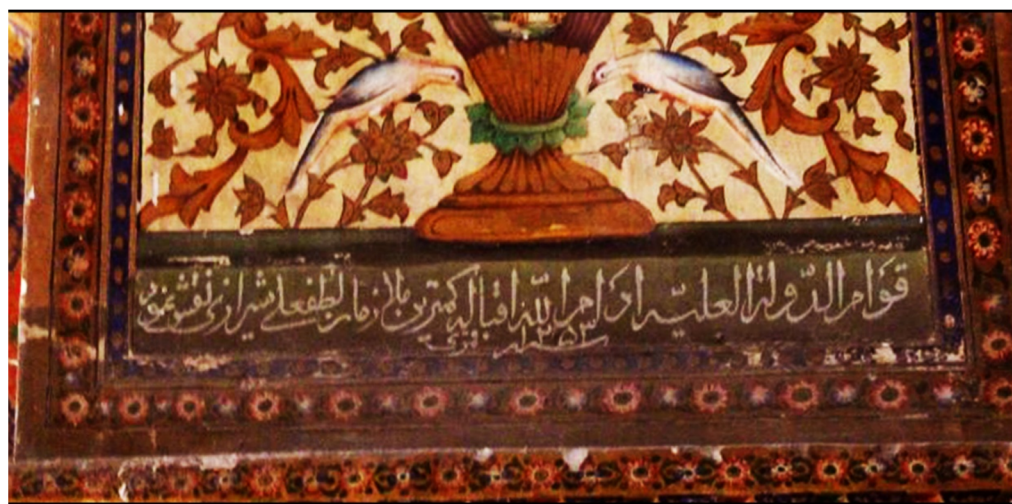 قوام الدولة العلیه ادام الله اقباله کمترین ملازمان لطفعلی شیرازی نقش نمود
سنه ۱۲۵۳